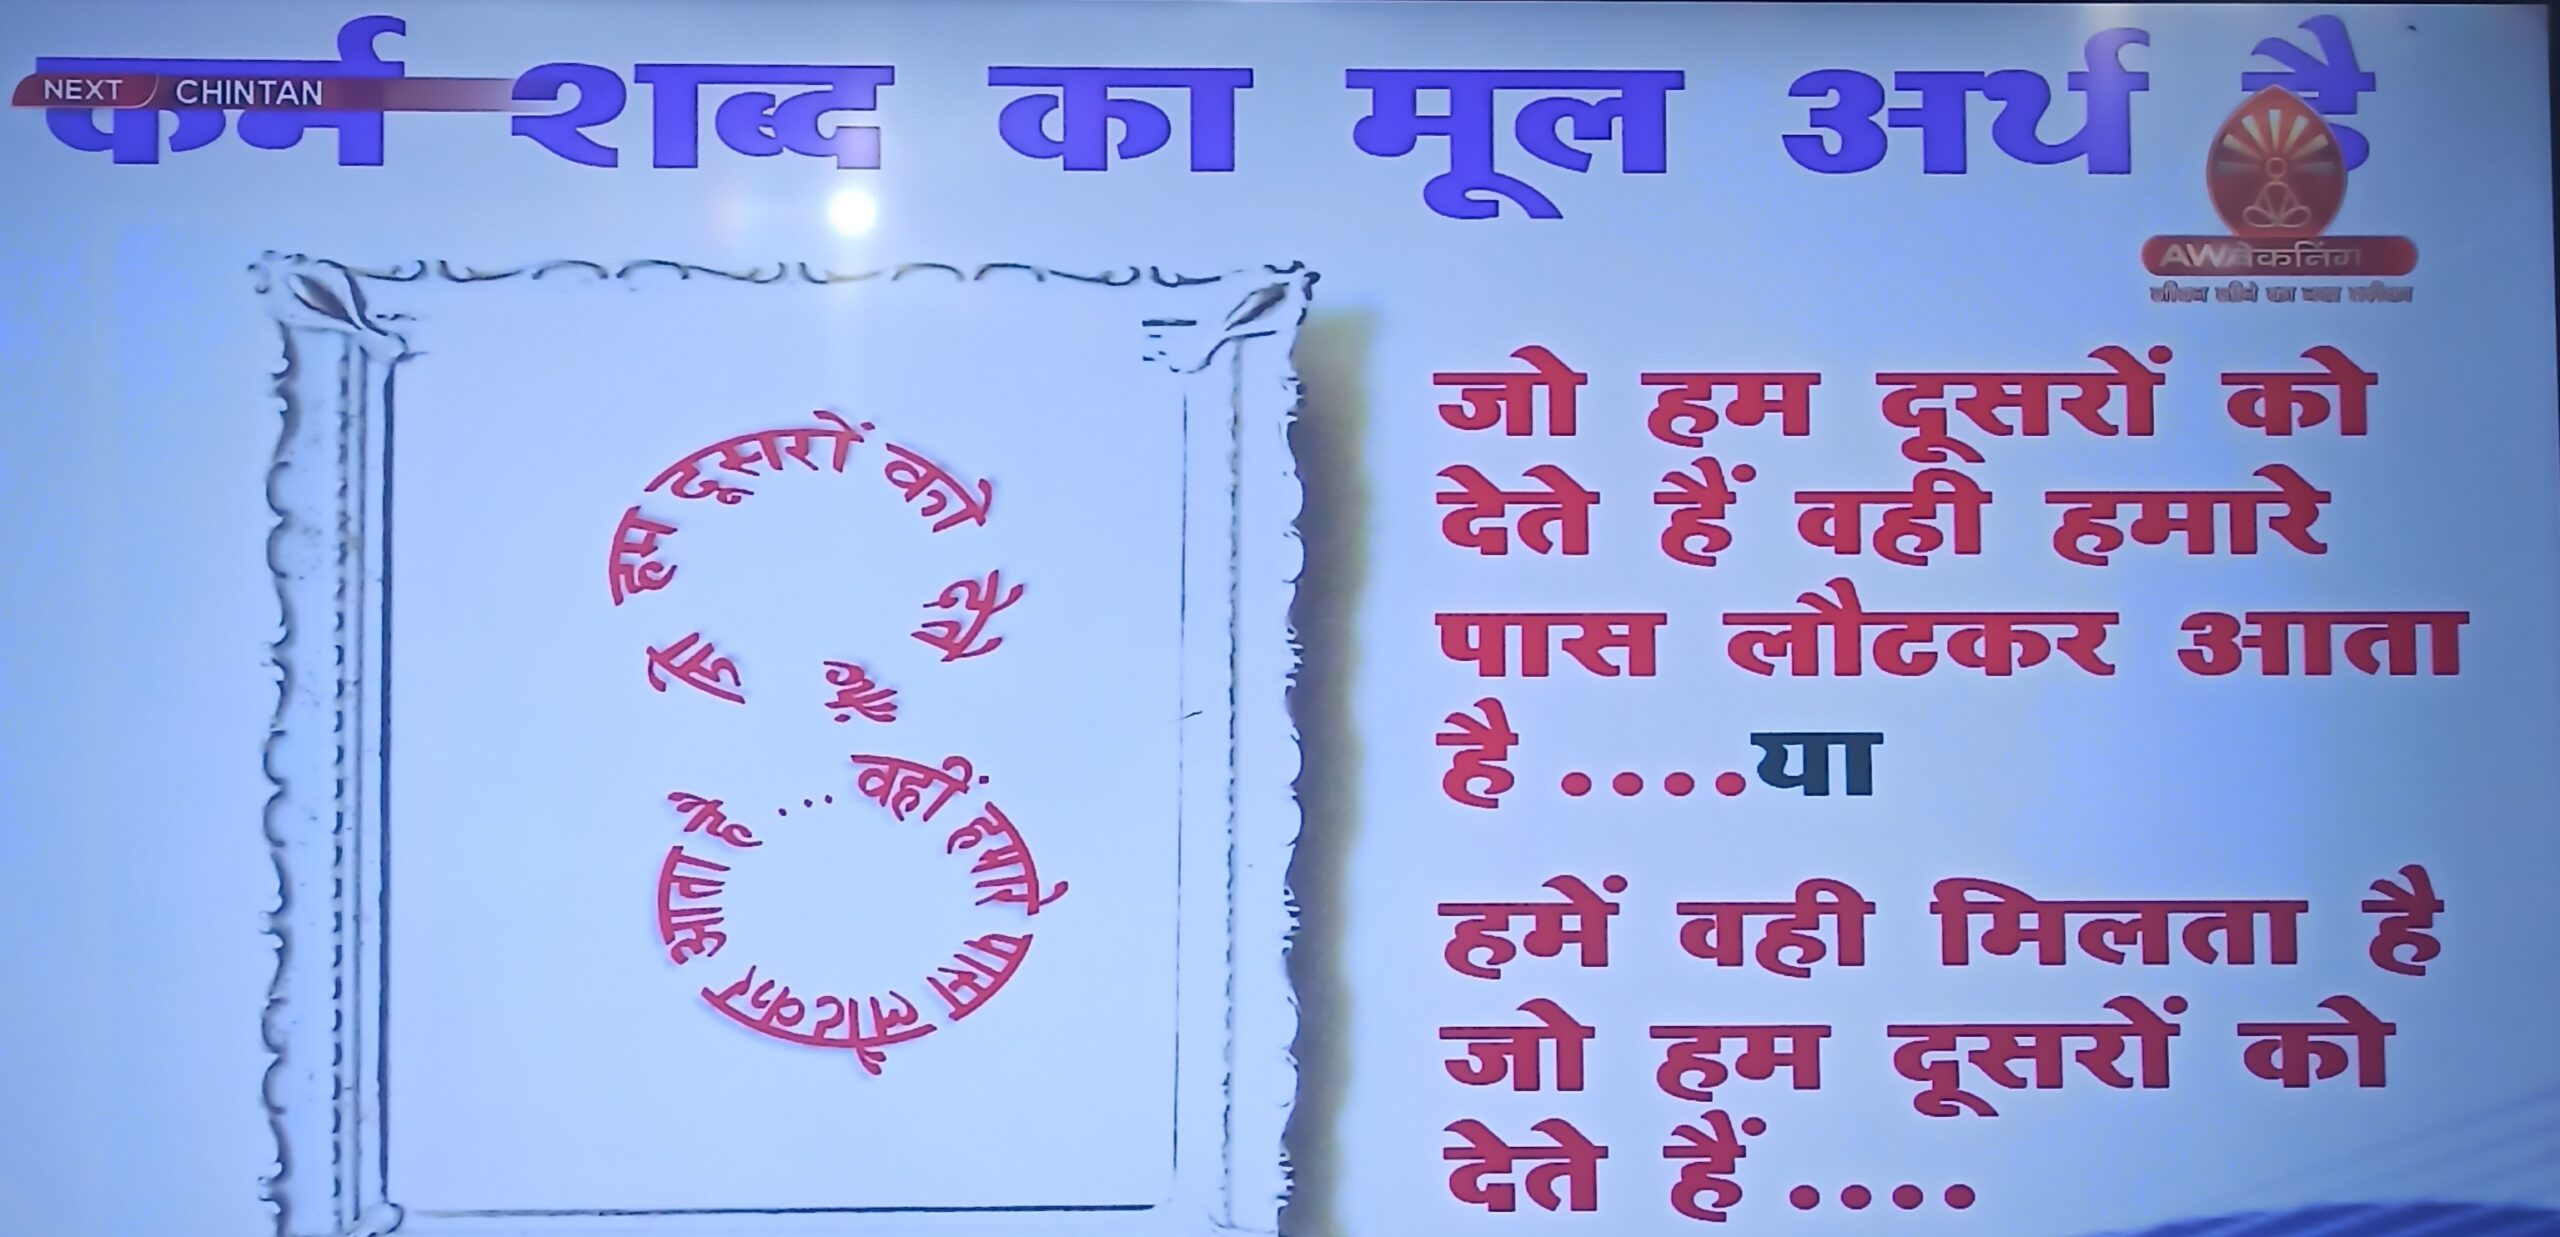 कर्म शब्द का मूल अर्थ है
NEXT CHINTAN
AWAवेकनिंग
जीवन जीने का नया तरीका
जो हम दूसरों को देते हैं
वहीं हमारे पास लौटकर आता है ...
जो हम दूसरों को
देते हैं वही हमारे
पास लौटकर आता
है ....या
हमें वही मिलता है
जो हम दूसरों को
देते हैं ....